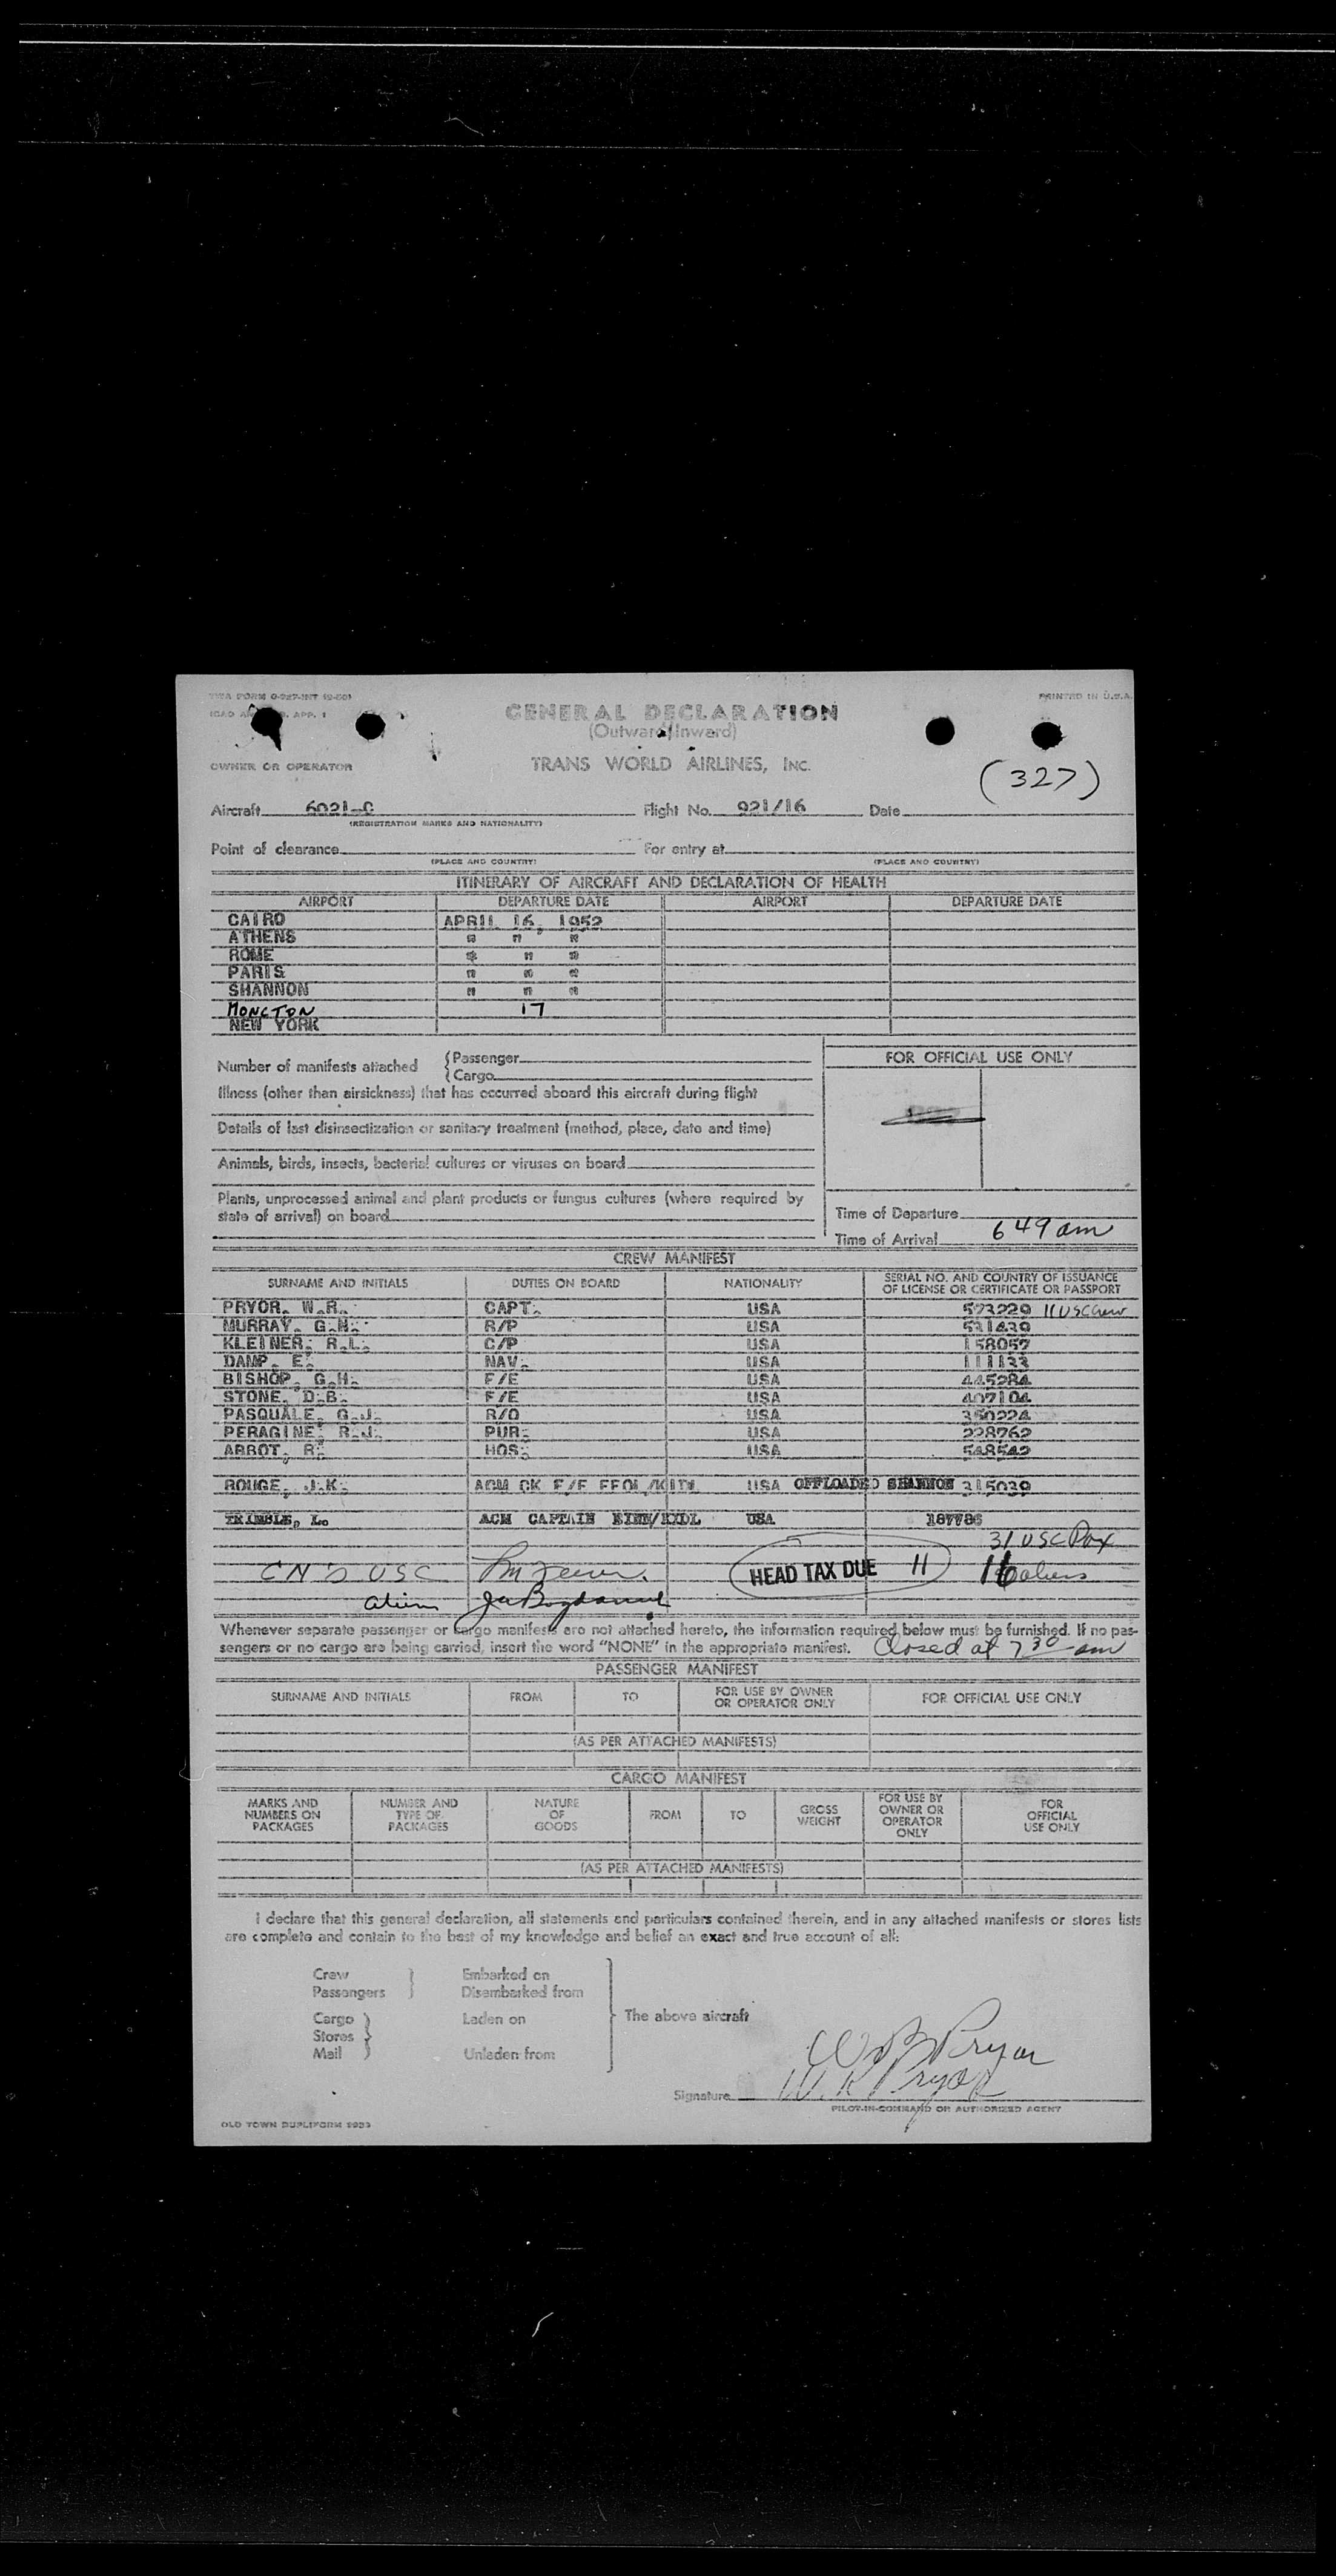 TWA FORM
PRINTED IN U.S.A.
APP. 1
GENERAL DECLARATION
(Outward/Inward)
OWNER OR OPERATOR
TRANS WORLD AIRLINES, INC.
(327)
Aircraft 6021-C Flight No. 921/16 Date
(REGISTRATION MARKS AND NATIONALITY)
Point of clearance For entry at
(PLACE AND COUNTRY) (PLACE AND COUNTRY)
ITINERARY OF AIRCRAFT AND DECLARATION OF HEALTH
AIRPORT DEPARTURE DATE AIRPORT DEPARTURE DATE
CAIRO APRIL 16, 1952
ATHENS " " "
ROME " " "
PARIS " " "
SHANNON " " "
MONCTON 17
NEW YORK
Number of manifests attached {Passenger
{Cargo
FOR OFFICIAL USE ONLY
Illness (other than airsickness) that has occurred aboard this aircraft during flight
Details of last disinsectization or sanitary treatment (method, place, date and time)
Animals, birds, insects, bacterial cultures or viruses on board
Plants, unprocessed animal and plant products or fungus cultures (where required by
state of arrival) on board
Time of Departure
Time of Arrival 6 49 am
CREW MANIFEST
SURNAME AND INITIALS DUTIES ON BOARD NATIONALITY SERIAL NO. AND COUNTRY OF ISSUANCE
OF LICENSE OR CERTIFICATE OR PASSPORT
PRYOR, W.R. CAPT. USA 573229 11 USC Crew
MURRAY, G.N. R/P USA 531439
KLEINER, R.L. C/P USA 158057
DAMP, E. NAV. USA 111133
BISHOP, G.H. F/E USA 445284
STONE, D.B. F/E USA 407104
PASQUALE, G.J. R/O USA 350224
PERAGINE, R.J. PUR. USA 228762
ABBOT, R. HOS. USA 548542
ROUGE, J.K. ACM CK F/E USA OFFLOADED SHANNON 315039
TRIMBLE, L. ACM CAPTAIN USA 187786
31 USC Pax
CN's USC HEAD TAX DUE 11 16 aliens
alien
Whenever separate passenger or cargo manifests are not attached hereto, the information required below must be furnished. If no pas-
sengers or no cargo are being carried, insert the word "NONE" in the appropriate manifest. Closed at 7 30 am
PASSENGER MANIFEST
SURNAME AND INITIALS FROM TO FOR USE BY OWNER
OR OPERATOR ONLY FOR OFFICIAL USE ONLY
(AS PER ATTACHED MANIFESTS)
CARGO MANIFEST
MARKS AND
NUMBERS ON
PACKAGES NUMBER AND
TYPE OF
PACKAGES NATURE
OF
GOODS FROM TO GROSS
WEIGHT FOR USE BY
OWNER OR
OPERATOR
ONLY FOR
OFFICIAL
USE ONLY
(AS PER ATTACHED MANIFESTS)
I declare that this general declaration, all statements and particulars contained therein, and in any attached manifests or stores lists
are complete and contain to the best of my knowledge and belief an exact and true account of all:
Crew } Embarked on
Passengers } Disembarked from
Cargo } Laden on The above aircraft
Stores }
Mail } Unladen from
W R Pryor
Signature W. R Pryor
PILOT-IN-COMMAND OR AUTHORIZED AGENT
OLD TOWN DUPLIFORM